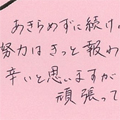 あきらめずに続け
努力はきっと報わ
辛いと思いますが
頑張って